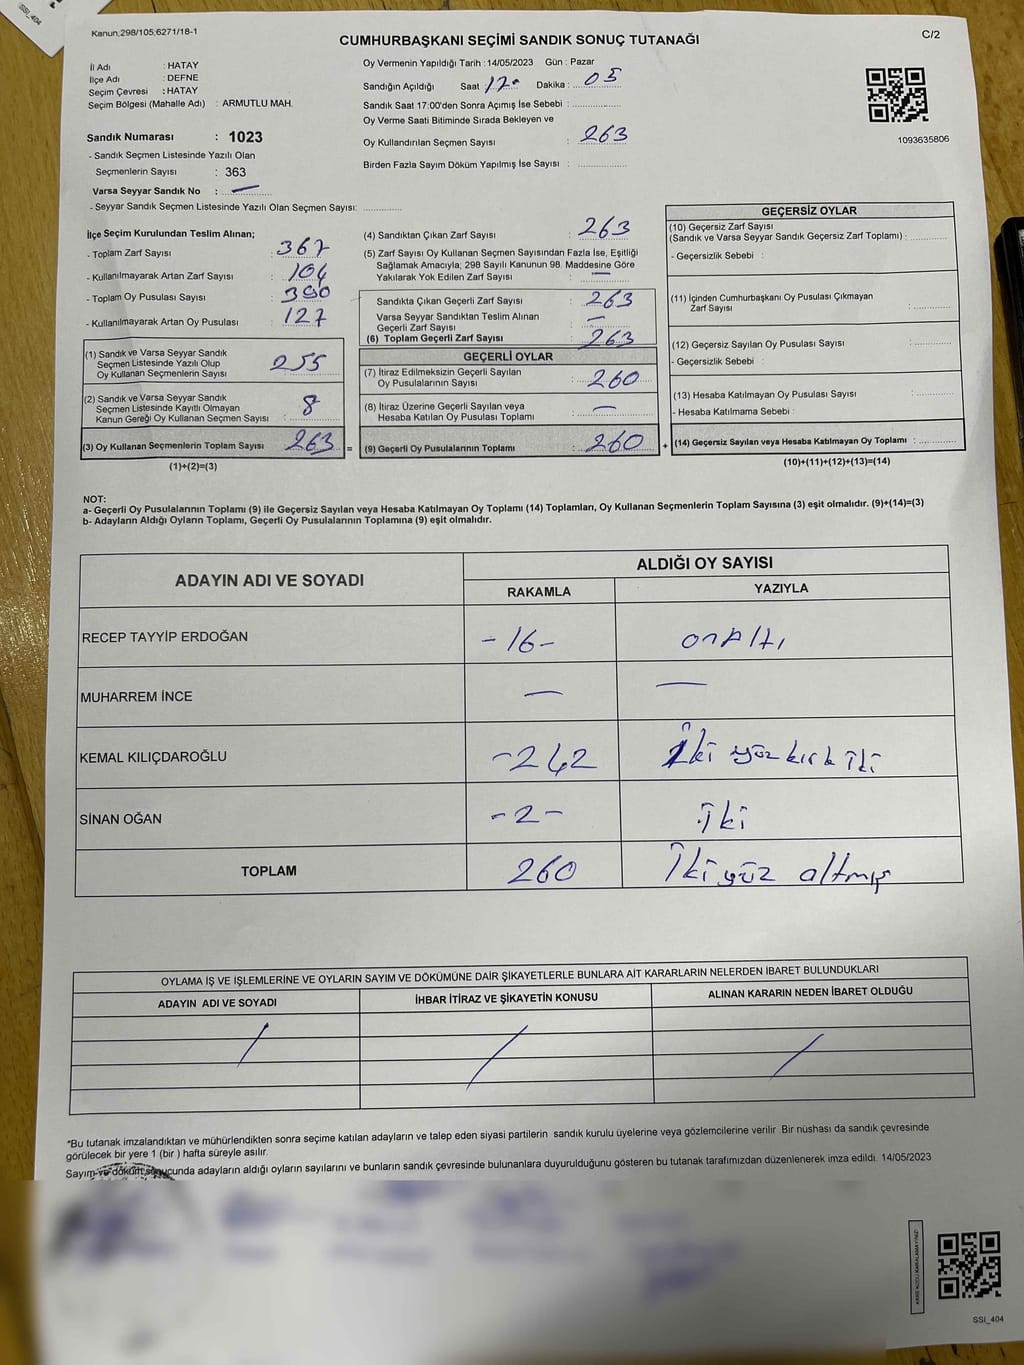 SSI_404
Kanun;298/105;6271/18-1
C/2
CUMHURBAŞKANI SEÇİMİ SANDIK SONUÇ TUTANAĞI
İl Adı : HATAY
İlçe Adı : DEFNE
Seçim Çevresi : HATAY
Seçim Bölgesi (Mahalle Adı) : ARMUTLU MAH.
Sandık Numarası : 1023
- Sandık Seçmen Listesinde Yazılı Olan
Seçmenlerin Sayısı : 363
Varsa Seyyar Sandık No : —
- Seyyar Sandık Seçmen Listesinde Yazılı Olan Seçmen Sayısı: ..............
Oy Vermenin Yapıldığı Tarih : 14/05/2023 Gün : Pazar
Sandığın Açıldığı Saat Dakika : 05
Sandık Saat 17:00'den Sonra Açımış İse Sebebi : ..............
Oy Verme Saati Bitiminde Sırada Bekleyen ve
Oy Kullandırılan Seçmen Sayısı : 263
Birden Fazla Sayım Döküm Yapılmış İse Sayısı : ..............
1093635806
İlçe Seçim Kurulundan Teslim Alınan;
- Toplam Zarf Sayısı : 367
- Kullanılmayarak Artan Zarf Sayısı : 104
- Toplam Oy Pusulası Sayısı :
- Kullanılmayarak Artan Oy Pusulası : 127
(1) Sandık ve Varsa Seyyar Sandık
Seçmen Listesinde Yazılı Olup
Oy Kullanan Seçmenlerin Sayısı : 255
(2) Sandık ve Varsa Seyyar Sandık
Seçmen Listesinde Kayıtlı Olmayan
Kanun Gereği Oy Kullanan Seçmen Sayısı : 8
(3) Oy Kullanan Seçmenlerin Toplam Sayısı : 263 =
(1)+(2)=(3)
(4) Sandıktan Çıkan Zarf Sayısı : 263
(5) Zarf Sayısı Oy Kullanan Seçmen Sayısından Fazla İse, Eşitliği
Sağlamak Amacıyla; 298 Sayılı Kanunun 98. Maddesine Göre
Yakılarak Yok Edilen Zarf Sayısı : —
Sandıkta Çıkan Geçerli Zarf Sayısı : 263
Varsa Seyyar Sandıktan Teslim Alınan
Geçerli Zarf Sayısı : —
(6) Toplam Geçerli Zarf Sayısı : 263
GEÇERLİ OYLAR
(7) İtiraz Edilmeksizin Geçerli Sayılan
Oy Pusulalarının Sayısı : 260
(8) İtiraz Üzerine Geçerli Sayılan veya
Hesaba Katılan Oy Pusulası Toplamı : —
(9) Geçerli Oy Pusulalarının Toplamı : 260 +
GEÇERSİZ OYLAR
(10) Geçersiz Zarf Sayısı
(Sandık ve Varsa Seyyar Sandık Geçersiz Zarf Toplamı) : ..............
- Geçersizlik Sebebi :
(11) İçinden Cumhurbaşkanı Oy Pusulası Çıkmayan
Zarf Sayısı : ..............
(12) Geçersiz Sayılan Oy Pusulası Sayısı : ..............
- Geçersizlik Sebebi :
(13) Hesaba Katılmayan Oy Pusulası Sayısı : ..............
- Hesaba Katılmama Sebebi :
(14) Geçersiz Sayılan veya Hesaba Katılmayan Oy Toplamı : ..............
(10)+(11)+(12)+(13)=(14)
NOT:
a- Geçerli Oy Pusulalarının Toplamı (9) ile Geçersiz Sayılan veya Hesaba Katılmayan Oy Toplamı (14) Toplamları, Oy Kullanan Seçmenlerin Toplam Sayısına (3) eşit olmalıdır. (9)+(14)=(3)
b- Adayların Aldığı Oyların Toplamı, Geçerli Oy Pusulalarının Toplamına (9) eşit olmalıdır.
ADAYIN ADI VE SOYADI
ALDIĞI OY SAYISI
RAKAMLA YAZIYLA
RECEP TAYYİP ERDOĞAN -16- onAltı
MUHARREM İNCE — —
KEMAL KILIÇDAROĞLU -242 İki yüz kırk iki
SİNAN OĞAN -2- iki
TOPLAM 260 İki yüz altmış
OYLAMA İŞ VE İŞLEMLERİNE VE OYLARIN SAYIM VE DÖKÜMÜNE DAİR ŞİKAYETLERLE BUNLARA AİT KARARLARIN NELERDEN İBARET BULUNDUKLARI
ADAYIN ADI VE SOYADI İHBAR İTİRAZ VE ŞİKAYETİN KONUSU ALINAN KARARIN NEDEN İBARET OLDUĞU
*Bu tutanak imzalandıktan ve mühürlendikten sonra seçime katılan adayların ve talep eden siyasi partilerin sandık kurulu üyelerine veya gözlemcilerine verilir .Bir nüshası da sandık çevresinde
görülecek bir yere 1 (bir ) hafta süreyle asılır.
Sayım ve döküm sonucunda adayların aldığı oyların sayılarını ve bunların sandık çevresinde bulunanlara duyurulduğunu gösteren bu tutanak tarafımızdan düzenlenerek imza edildi. 14/05/2023
SSI_404